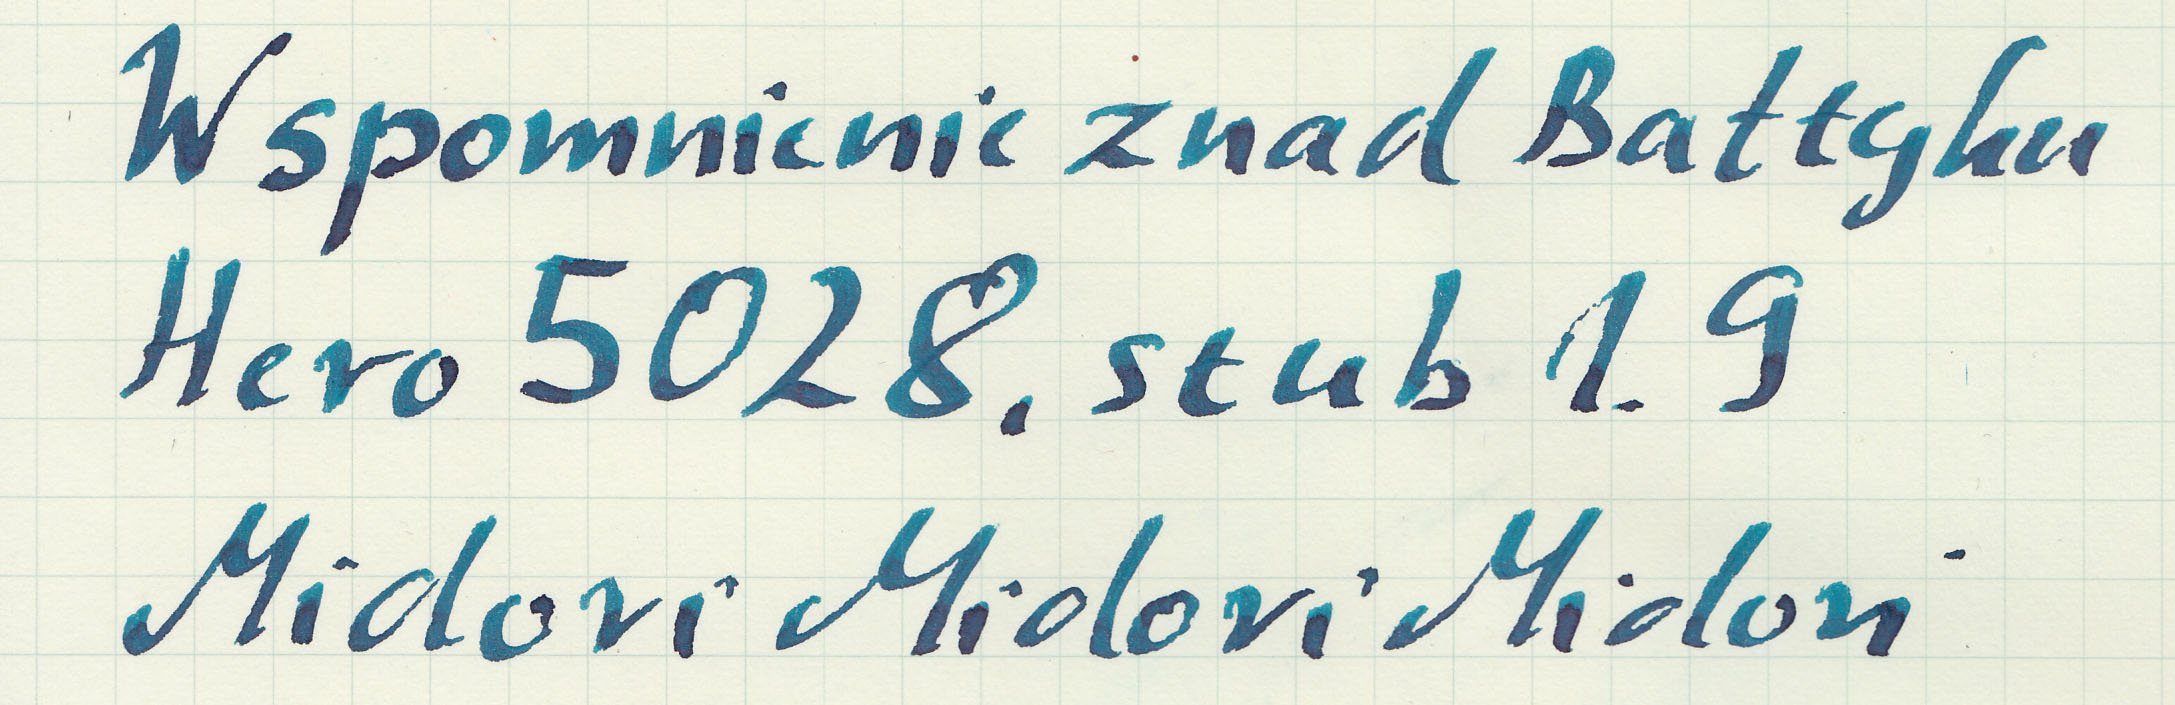 Wspomnienie znad Bałtyku
Hero 5028, stub 1.9
Midori Midori Midori